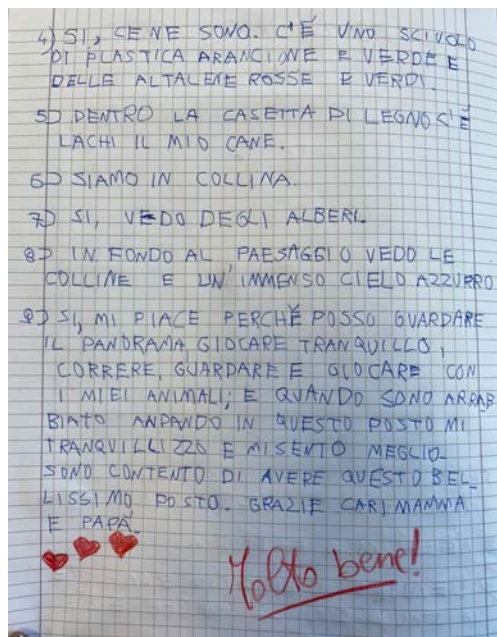 4) SI, CE NE SONO. C'È UNO SCIVOLO
DI PLASTICA ARANCIONE E VERDE E
DELLE ALTALENE ROSSE E VERDI.
5) DENTRO LA CASETTA DI LEGNO C'È
LACHI IL MIO CANE.
6) SIAMO IN COLLINA.
7) SI, VEDO DEGLI ALBERI.
8) IN FONDO AL PAESAGGIO VEDO LE
COLLINE E UN'IMMENSO CIELO AZZURRO
9) SI, MI PIACE PERCHÈ POSSO GUARDARE
IL PANORAMA, GIOCARE TRANQUILLO,
CORRERE, GUARDARE E GIOCARE CON
I MIEI ANIMALI; E QUANDO SONO ARRAB
BIATO ANDANDO IN QUESTO POSTO MI
TRANQUILLIZZO E MI SENTO MEGLIO.
SONO CONTENTO DI AVERE QUESTO BEL_
LISSIMO POSTO. GRAZIE CARI MAMMA
E PAPÀ.
Molto bene!